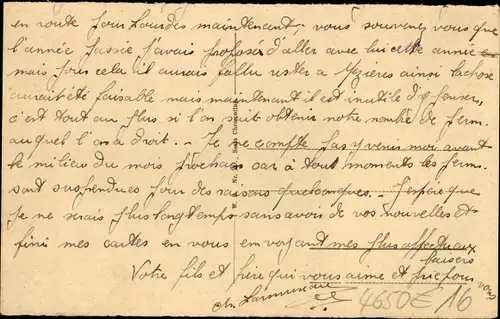 en route pour Lourdes maintenant, vous souvenez vous que
l'année passée j'avais proposer d'aller avec lui cette année
mais pour cela il aurais fallu rester a Mezières ainsi la chose
aurait été faisable mais maintenant il est inutile d'y penser,
c'est tout au plus si l'on vait obtenir notre nombre de perm.
auquel l'on a droit. - Je ne compte pas y venir moi avant
le milieu du mois prochain car à tout moments les perms.
sont suspendues pour des raisons quelconques. J'espère que
je ne serais plus longtemps sans avoir de vos nouvelles et
fini mes cartes en vous envoyant mes plus affectueux
baisers
Votre fils et frère qui vous aime et prie pour vous
4650E 16